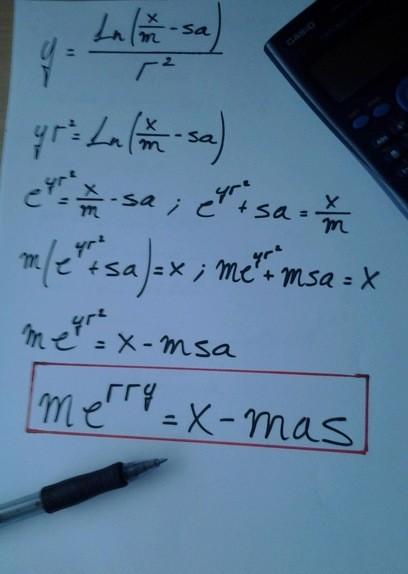 y = Ln(x/m - sa) / r²
yr² = Ln(x/m - sa)
e^yr² = x/m - sa ; e^yr² + sa = x/m
m(e^yr² + sa) = x ; me^yr² + msa = x
me^yr² = x - msa
me^rry = x - mas
CASIO